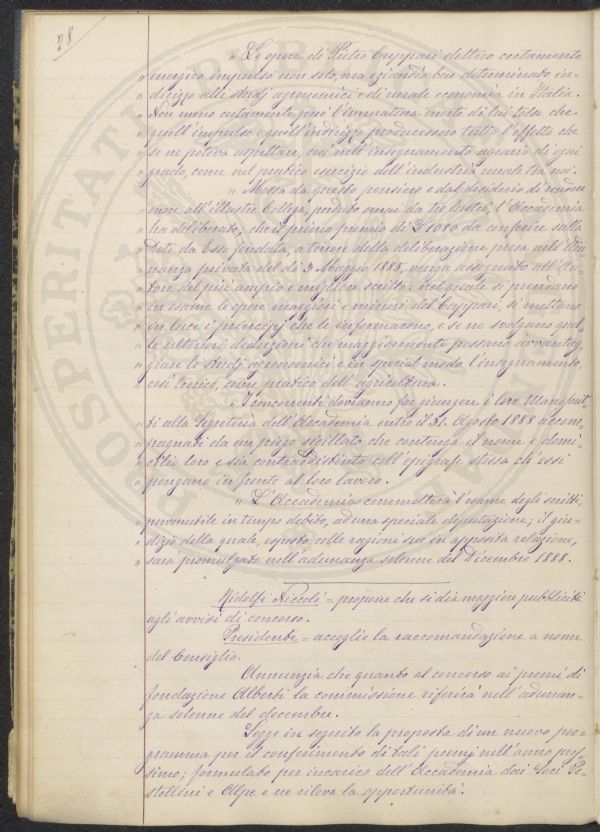 78
" Le opere di Pietro Cuppari dettero certamente
" energico impulso non solo, ma eziandio ben determinato in-
" dirizzo alli studj agronomici e di rurale economia in Italia.
" Non meno certamente però l'immatura morte di lui tolse che
" quell'impulso e quell'indirizzo producessero tutto l'effetto che
" se ne poteva aspettare, così nell'insegnamento agrario di ogni
" grado, come nel pratico esercizio dell'industria rurale tra noi.
" Mossa da questo pensiero e dal desiderio di rendere
" onore all'illustre Collega, perduto omai da tre lustri, l'Accademia
" ha deliberato, che il primo premio di L 1080 da conferire sulla
" Dote da Esso fondata, a tenore della deliberazione presa nell'Adu-
" nanza privata del dì 3 Maggio 1885, venga assegnato all'Au-
" tore del più ampio e migliore scritto: nel quale si prendano
" in esame le opere maggiori e minori del Cuppari, si mettano
" in luce i principj che le informarono, e se ne svolgano quel-
" le ulteriori deduzioni che maggiormente possano avvantag-
" giare li studj agronomici e in special modo l'insegnamento,
" così teorico, come pratico dell'agricoltura.
" I concorrenti dovranno far giungere i loro Manoscrit-
" ti alla Segreteria dell'Accademia entro il 31. Agosto 1888 accom-
" pagnati da un piego sigillato che contenga il nome e domi-
" cilio loro e sia contraddistinto coll'epigrafe stessa ch'essi
" pongano in fronte al loro lavoro.
" L'Accademia commetterà l'esame degli scritti,
" pervenutile in tempo debito, ad una speciale deputazione; il giu-
" dizio della quale, esposto colle ragioni sue in apposita relazione,
" sarà promulgato nell'adunanza solenne del Dicembre 1888.
Ridolfi Niccolò = propone che si dia maggiore pubblicità
agli avvisi di concorso.
Presidente = accoglie la raccomandazione a nome
del Consiglio.
Annunzia che quanto al concorso ai premi di
fondazione Alberti la commissione riferirà nell'adunan-
za solenne del decembre.
Legge in seguito la proposta di un nuovo pro-
gramma per il conferimento di tali premj nell'anno pros-
simo, formulato per incarico dell'Accademia dai Soci Pe-
stellini e Alpe e ne rileva la opportunità.